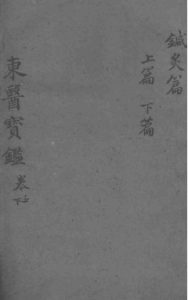 鍼灸篇
上篇 下篇
東醫寶鑑 卷上下